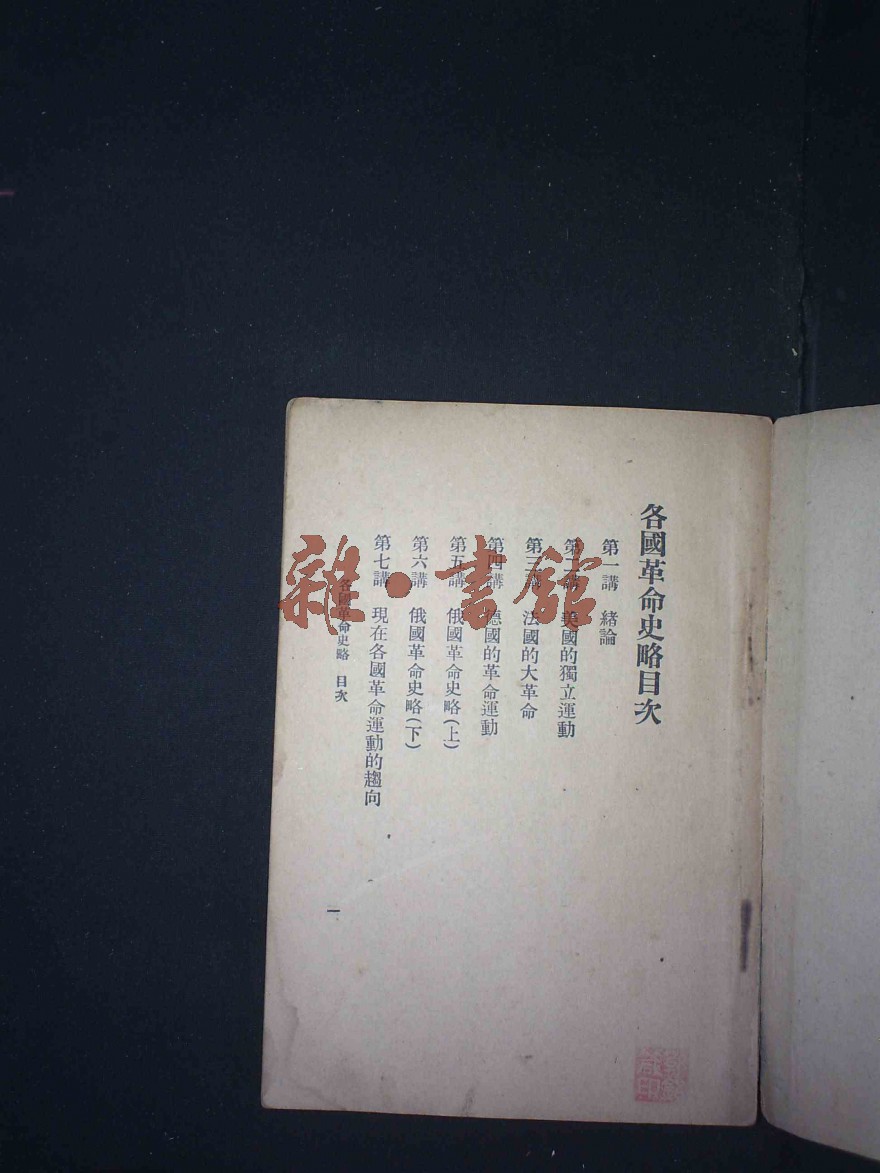 各國革命史略目次
第一講　緒論
第二講　美國的獨立運動
第三講　法國的大革命
第四講　德國的革命運動
第五講　俄國革命史略(上)
第六講　俄國革命史略(下)
第七講　現在各國革命運動的趨向
各國革命史略　目次
一
雜·書館